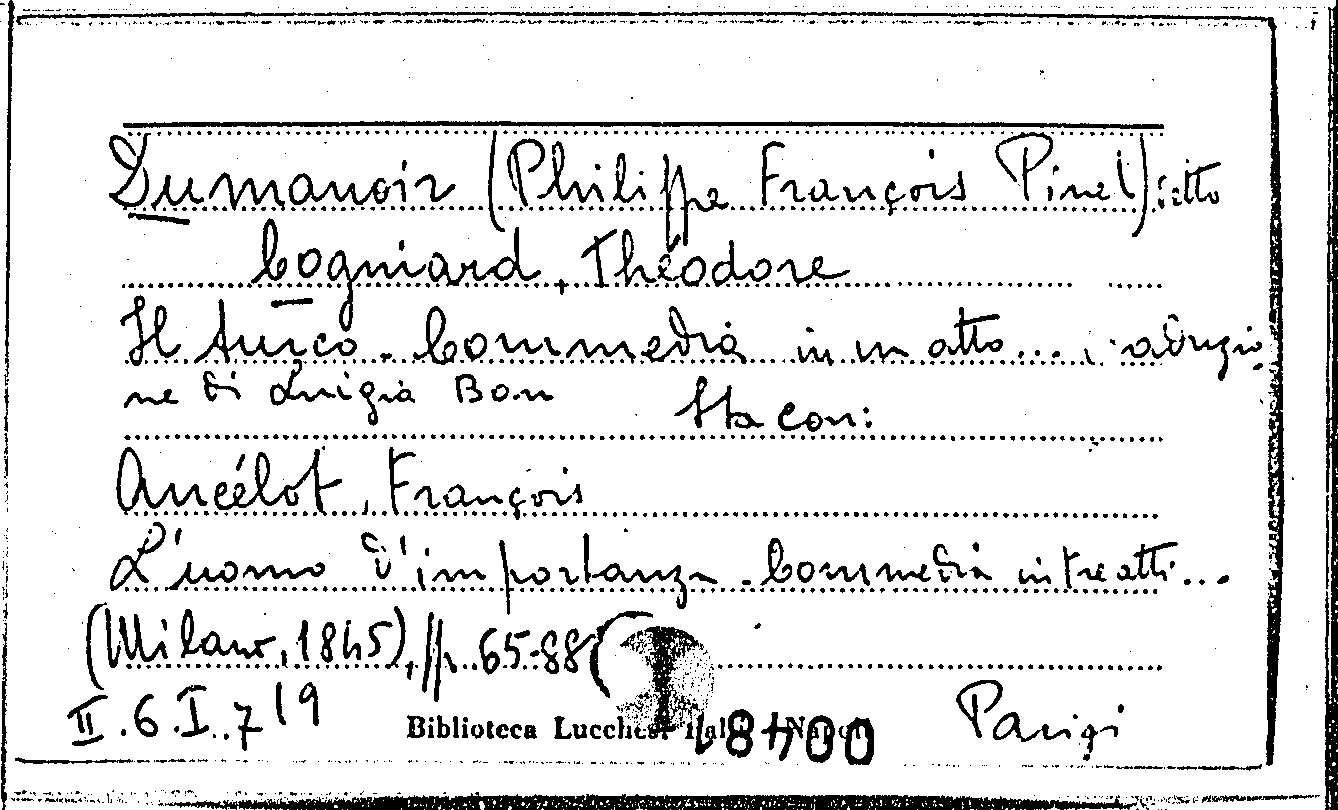 Dumanoir (Philippe François Pinel) detto
Cogniard, Théodore
Il turco. Commedia in un atto... traduzio
ne di Luigia Bon
Sta con:
Ancélot, François
L'uomo d'importanza. Commedia in tre atti...
(Milano, 1845), pp. 65-88(
II.6.I.7 19
Biblioteca Lucchesi
Parigi